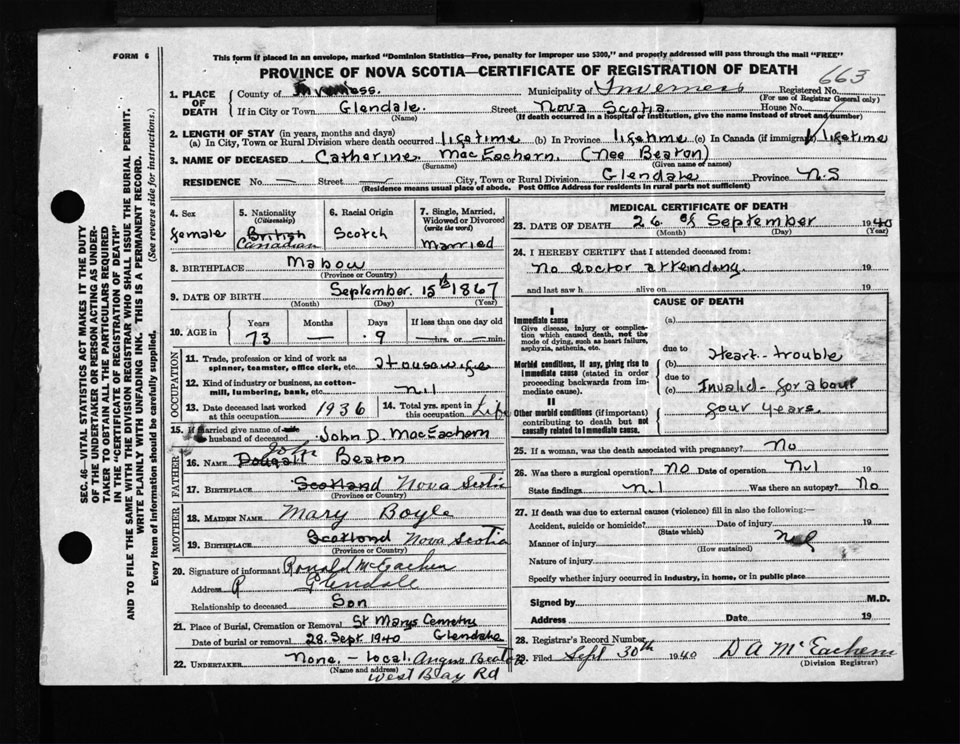 FORM 6
This form if placed in an envelope, marked "Dominion Statistics—Free, penalty for improper use $300," and properly addressed will pass through the mail "FREE"
PROVINCE OF NOVA SCOTIA—CERTIFICATE OF REGISTRATION OF DEATH
663
SEC. 46—VITAL STATISTICS ACT MAKES IT THE DUTY
OF THE UNDERTAKER OR PERSON ACTING AS UNDERTAKER
TO OBTAIN ALL THE PARTICULARS REQUIRED
IN THE "CERTIFICATE OF REGISTRATION OF DEATH"
AND TO FILE THE SAME WITH THE DIVISION REGISTRAR WHO SHALL ISSUE THE BURIAL PERMIT.
WRITE PLAINLY WITH UNFADING INK. THIS IS A PERMANENT RECORD.
Every item of information should be carefully supplied. (See reverse side for instructions.)
1. PLACE OF DEATH
County of Inverness. Municipality of Inverness Registered No.
(For use of Registrar General only)
If in City or Town Glendale. Street Nova Scotia House No.
(Name) (If death occurred in a hospital or institution, give the name instead of street and number)
2. LENGTH OF STAY (in years, months and days)
(a) In City, Town or Rural Division where death occurred lifetime (b) In Province lifetime (c) In Canada (if immigrant) lifetime
3. NAME OF DECEASED Catherine MacEachern. (Nee Beaton)
(Surname) (Given name or names)
RESIDENCE No. — Street — City, Town or Rural Division Glendale Province N.S
(Residence means usual place of abode. Post Office Address for residents in rural parts not sufficient)
4. Sex
female
5. Nationality (Citizenship)
British
Canadian
6. Racial Origin
Scotch
7. Single, Married, Widowed or Divorced (write the word)
Married
8. BIRTHPLACE Mabou
(Province or Country)
9. DATE OF BIRTH September. 15th 1867
(Month) (Day) (Year)
10. AGE in
Years 73
Months —
Days 9
If less than one day old
—hrs. or —min.
OCCUPATION
11. Trade, profession or kind of work as spinner, teamster, office clerk, etc. Housewife
12. Kind of industry or business, as cotton-mill, lumbering, bank, etc. nil
13. Date deceased last worked at this occupation 1936
14. Total yrs. spent in this occupation Life
15. If married give name of wife husband of deceased John D. MacEachern
FATHER
16. NAME Dougall John Beaton
17. BIRTHPLACE Scotland Nova Scotia
(Province or Country)
MOTHER
18. MAIDEN NAME Mary Boyle
19. BIRTHPLACE Scotland Nova Scotia
(Province or Country)
20. Signature of informant Ronald McEachen
Address Glendale
Relationship to deceased Son
21. Place of Burial, Cremation or Removal St Marys Cemetry
Date of burial or removal 28. Sept. 1940 Glendale
22. UNDERTAKER None. – Local. Angus Beaton
(Name and address)
West Bay Rd
MEDICAL CERTIFICATE OF DEATH
23. DATE OF DEATH 26 of September 1940
(Month) (Day) (Year)
24. I HEREBY CERTIFY that I attended deceased from:
No doctor attending. 19
and last saw h alive on 19
CAUSE OF DEATH
I
Immediate cause
Give disease, injury or complication which caused death, not the mode of dying, such as heart failure, asphyxia, asthenia, etc.
Morbid conditions, if any, giving rise to immediate cause (stated in order proceeding backwards from immediate cause).
II
Other morbid conditions (if important) contributing to death but not causally related to immediate cause.
(a)
due to Heart-trouble
(b)
due to
(c) Invalid – for about
four years.
25. If a woman, was the death associated with pregnancy? No
26. Was there a surgical operation? No Date of operation Nil 19
State findings Nil Was there an autopsy? No
27. If death was due to external causes (violence) fill in also the following:—
Accident, suicide or homicide? Date of injury 19
(State which)
Manner of injury
(How sustained)
Nature of injury
Specify whether injury occurred in industry, in home, or in public place
Signed by M.D.
Address Date 19
28. Registrar's Record Number
29. Filed Sept 30th 1940 D A McEachern
(Division Registrar)